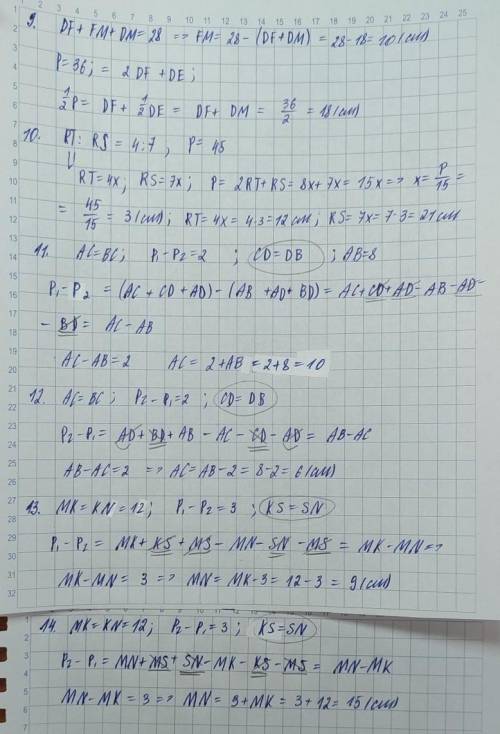 9. DF + FM + DM = 28 => FM = 28 - (DF + DM) = 28 - 18 = 10 (см)
P = 36; = 2DF + DE;
1/2 P = DF + 1/2 DE = DF + DM = 36/2 = 18 (см)
10. RT : RS = 4 : 7, P = 45
⇓
RT = 4x; RS = 7x; P = 2RT + RS = 8x + 7x = 15x => x = P/15 =
= 45/15 = 3 (см); RT = 4x = 4·3 = 12 см; RS = 7x = 7·3 = 21 см
11. AC = BC; P1 - P2 = 2 ; CD = DB ; AB = 8
P1 - P2 = (AC + CD + AD) - (AB + AD + BD) = AC + CD + AD - AB - AD -
- BD = AC - AB
AC - AB = 2 AC = 2 + AB = 2 + 8 = 10
12. AC = BC; P2 - P1 = 2 ; CD = DB
P2 - P1 = AD + BD + AB - AC - CD - AD = AB - AC
AB - AC = 2 => AC = AB - 2 = 8 - 2 = 6 (см)
13. MK = KN = 12; P1 - P2 = 3 ; KS = SN
P1 - P2 = MK + KS + MS - MN - SN - MS = MK - MN =>
MK - MN = 3 => MN = MK - 3 = 12 - 3 = 9 (см)
14. MK = KN = 12; P2 - P1 = 3 ; KS = SN
P2 - P1 = MN + MS + SN - MK - KS - MS = MN - MK
MN - MK = 3 => MN = 3 + MK = 3 + 12 = 15 (см)